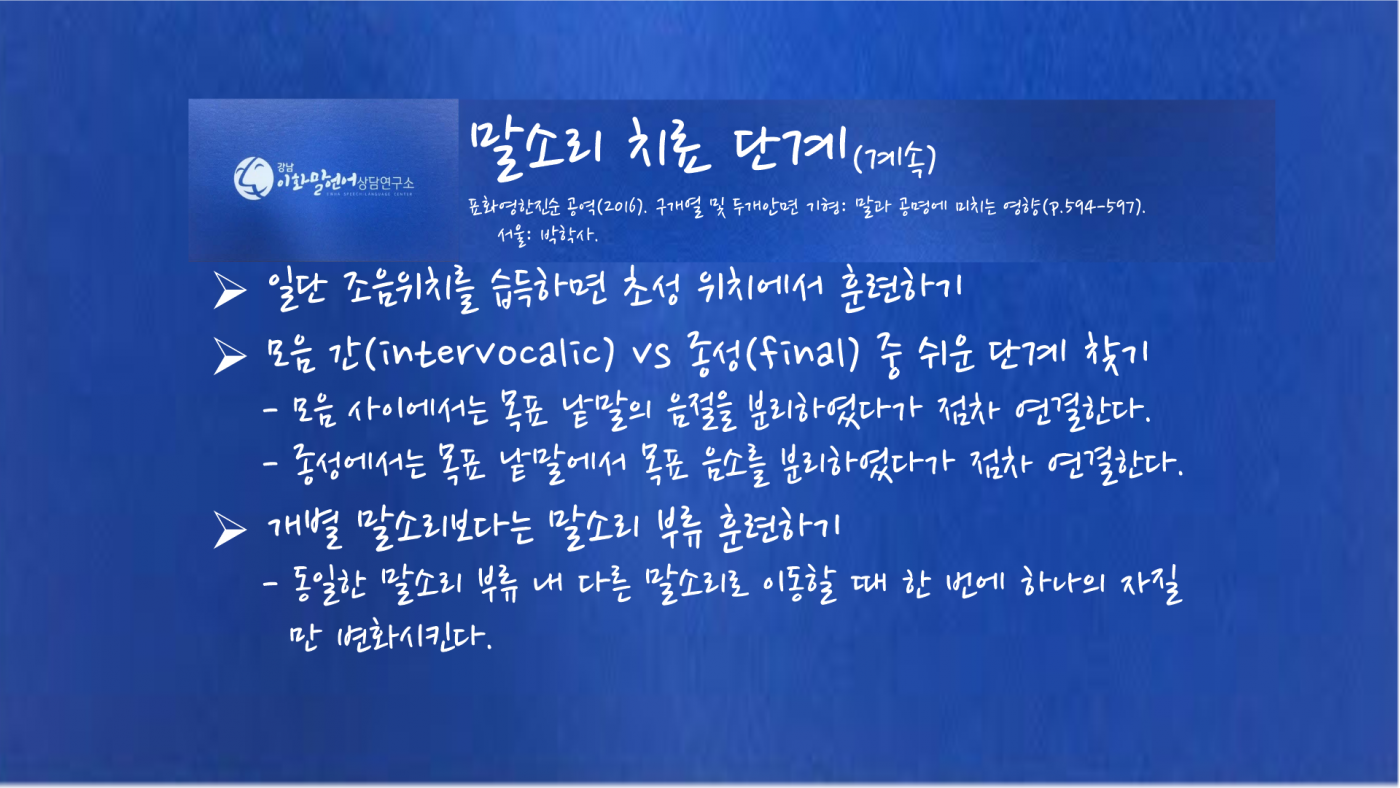 강남
이화말언어상담연구소
EWHA SPEECH-LANGUAGE CENTER
말소리 치료 단계(계속)
표화영한진순 공역(2016). 구개열 및 두개안면 기형: 말과 공명에 미치는 영향(p.594-597).
서울: 박학사.
➢ 일단 조음위치를 습득하면 초성 위치에서 훈련하기
➢ 모음 간(intervocalic) vs 종성(final) 중 쉬운 단계 찾기
- 모음 사이에서는 목표 낱말의 음절을 분리하였다가 점차 연결한다.
- 종성에서는 목표 낱말에서 목표 음소를 분리하였다가 점차 연결한다.
➢ 개별 말소리보다는 말소리 부류 훈련하기
- 동일한 말소리 부류 내 다른 말소리로 이동할 때 한 번에 하나의 자질
만 변화시킨다.